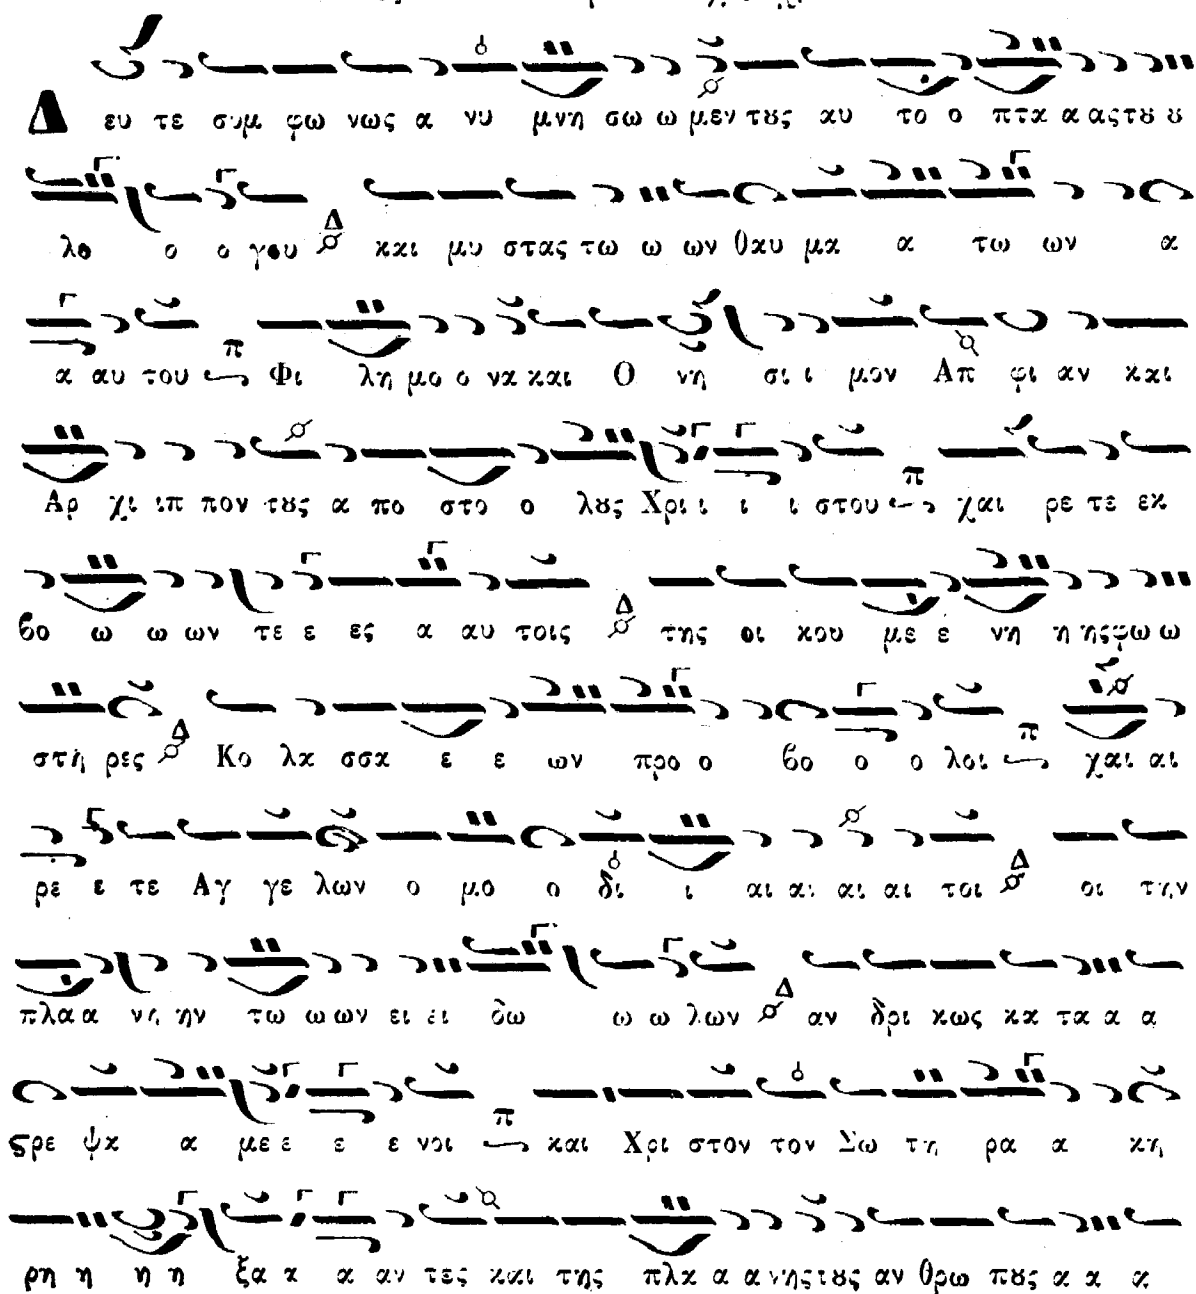 Δ ευ τε συμ φω νως α νυ μνη σω ω μεν τȣς αυ το ο πτα α α αςτȣ ȣ
λο ο ο γου Δ και μυ στας τω ω ων θαυ μα α τω ων α
α αυ του π Φι λη μο ο να και Ο νη σι ι μον Απ φι αν και
Αρ χι ιπ πον τȣς α πο στο ο λȣς Χρι ι ι ι στου π χαι ρε τε εκ
βο ω ω ων τε ε ες α αυ τοις Δ της οι κου με ε νη η ηςφω ω
στη ρες Δ Κο λα σσα ε ε ων προ ο βο ο ο λοι π χαι αι
ρε ε τε Αγ γε λων ο μο ο δι ι αι αι αι αι τοι Δ οι την
πλα α νη ην τω ω ων ει ει δω ω ω λων Δ αν δρι κως κα τα α α
ςρε ψα α με ε ε ε νοι π και Χρι στον τον Σω τη ρα α κη
ρη η η η ξα α α αν τες και της πλα α α νηςτȣς αν θρω πȣς α α α